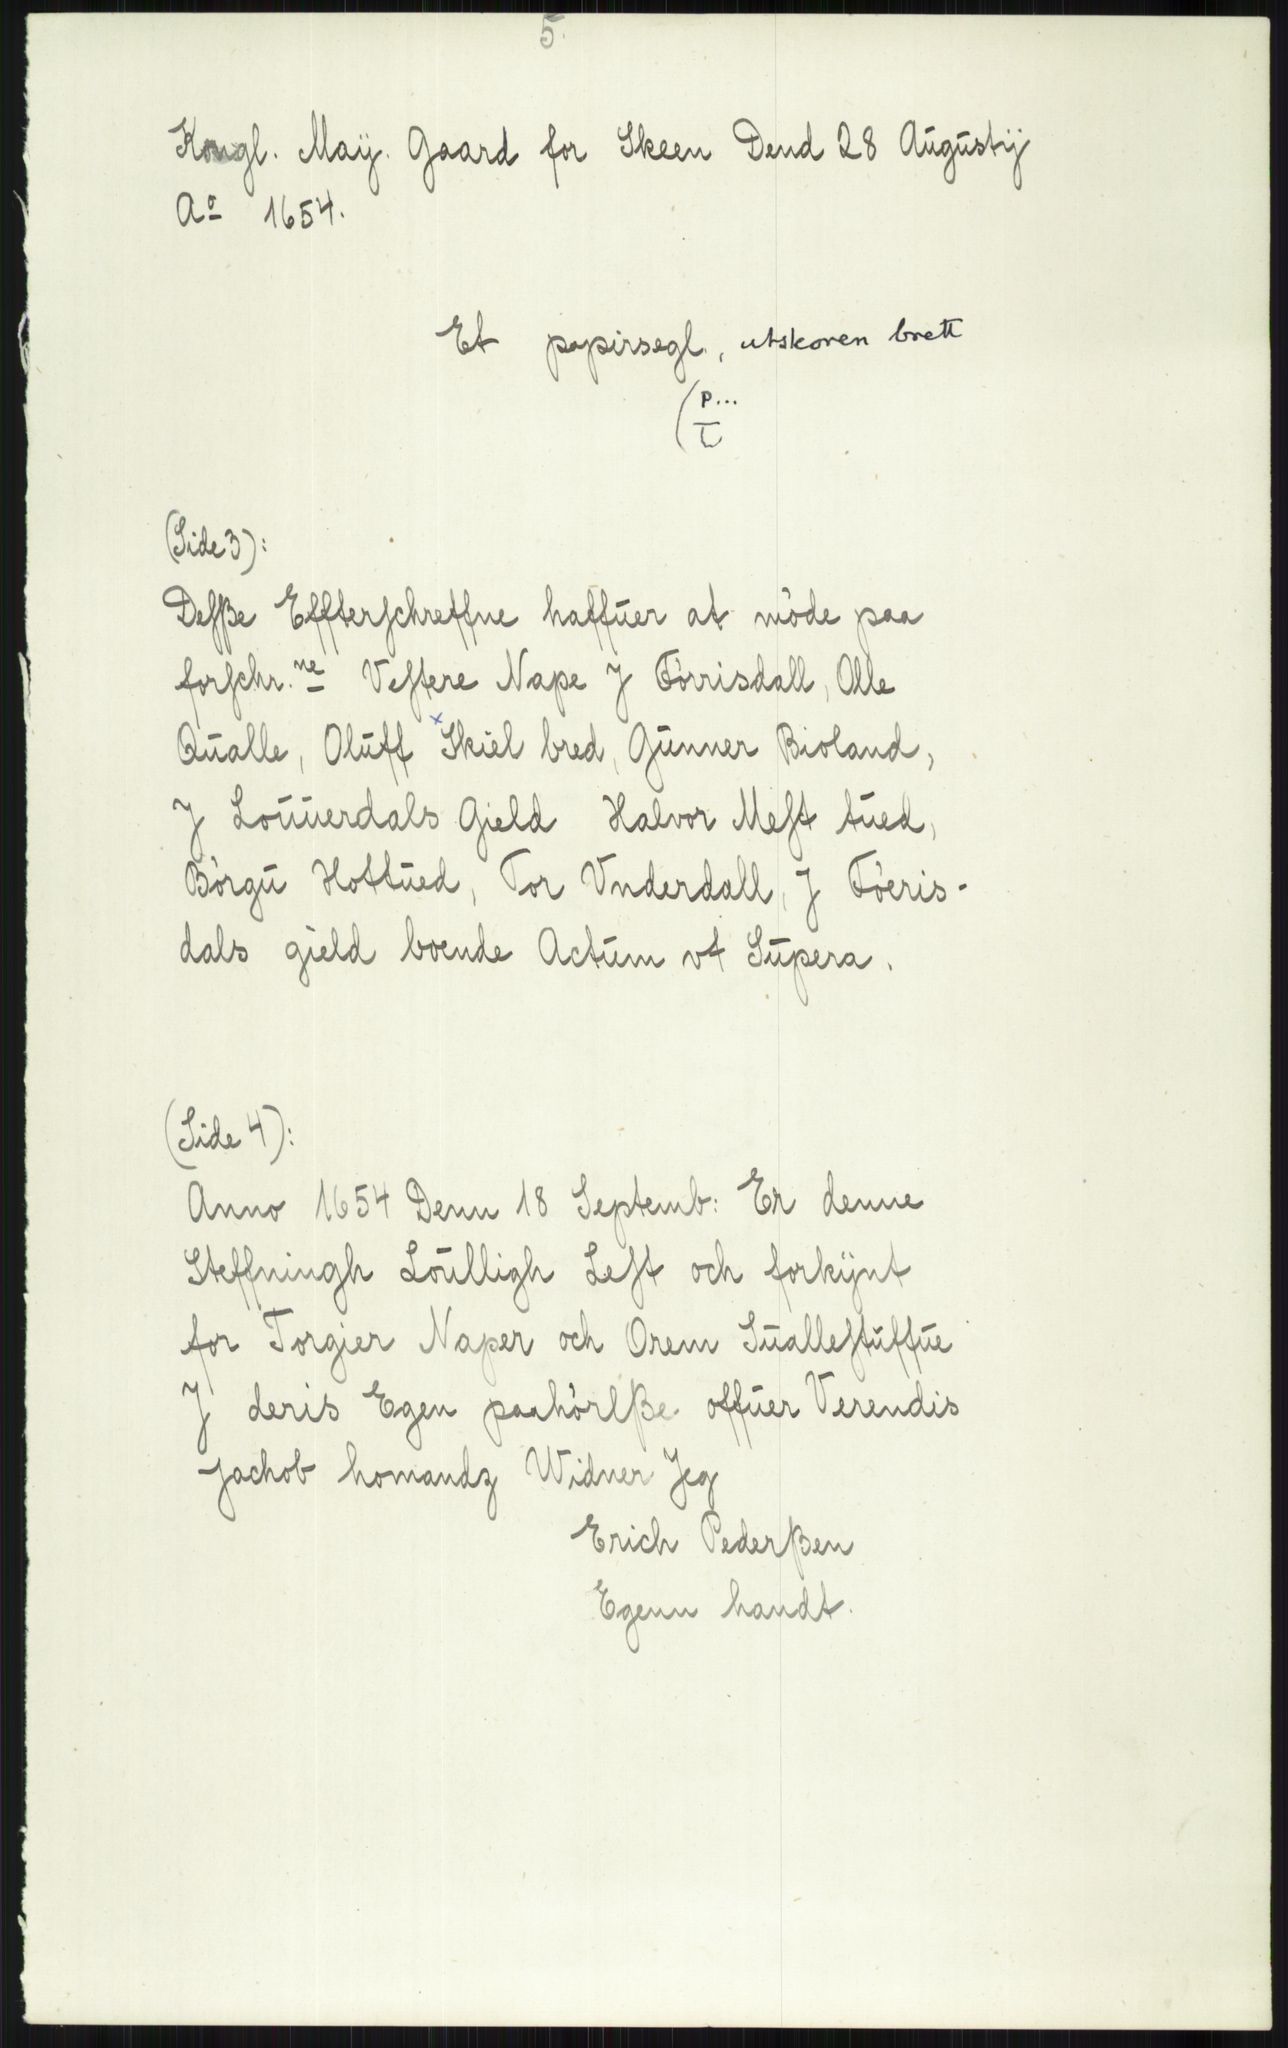 5.
Kongl. Maÿ. Gaard for Skeen Dend 28 Augustij
Aº 1654.
Et papirsegl, utskoren brett
(P...
T
(Side 3):
Desße Effterschreffne haffuer at møde paa
forschr.ne Vestere Nape JFörrisdall, Olle
Qualle, Oluff Skiel bred, Gunner Bioland,
J Louuerdals Gield Halvor Mest tued,
Börgu Hottued, Tor Vnderdall, J Föeris-
dals gield boende Actum vt Supera.
(Side 4):
Anno 1654 Denn 18 Septemb: Er denne
Steffningh Loulligh Lest och forkÿnt
for Torgier Naper och Orem Suallestuffue
J deris Egen paahörlße offuer Verendis
Jachob homandz Widner Jeg
Erich Pederßen
Egenn handt.